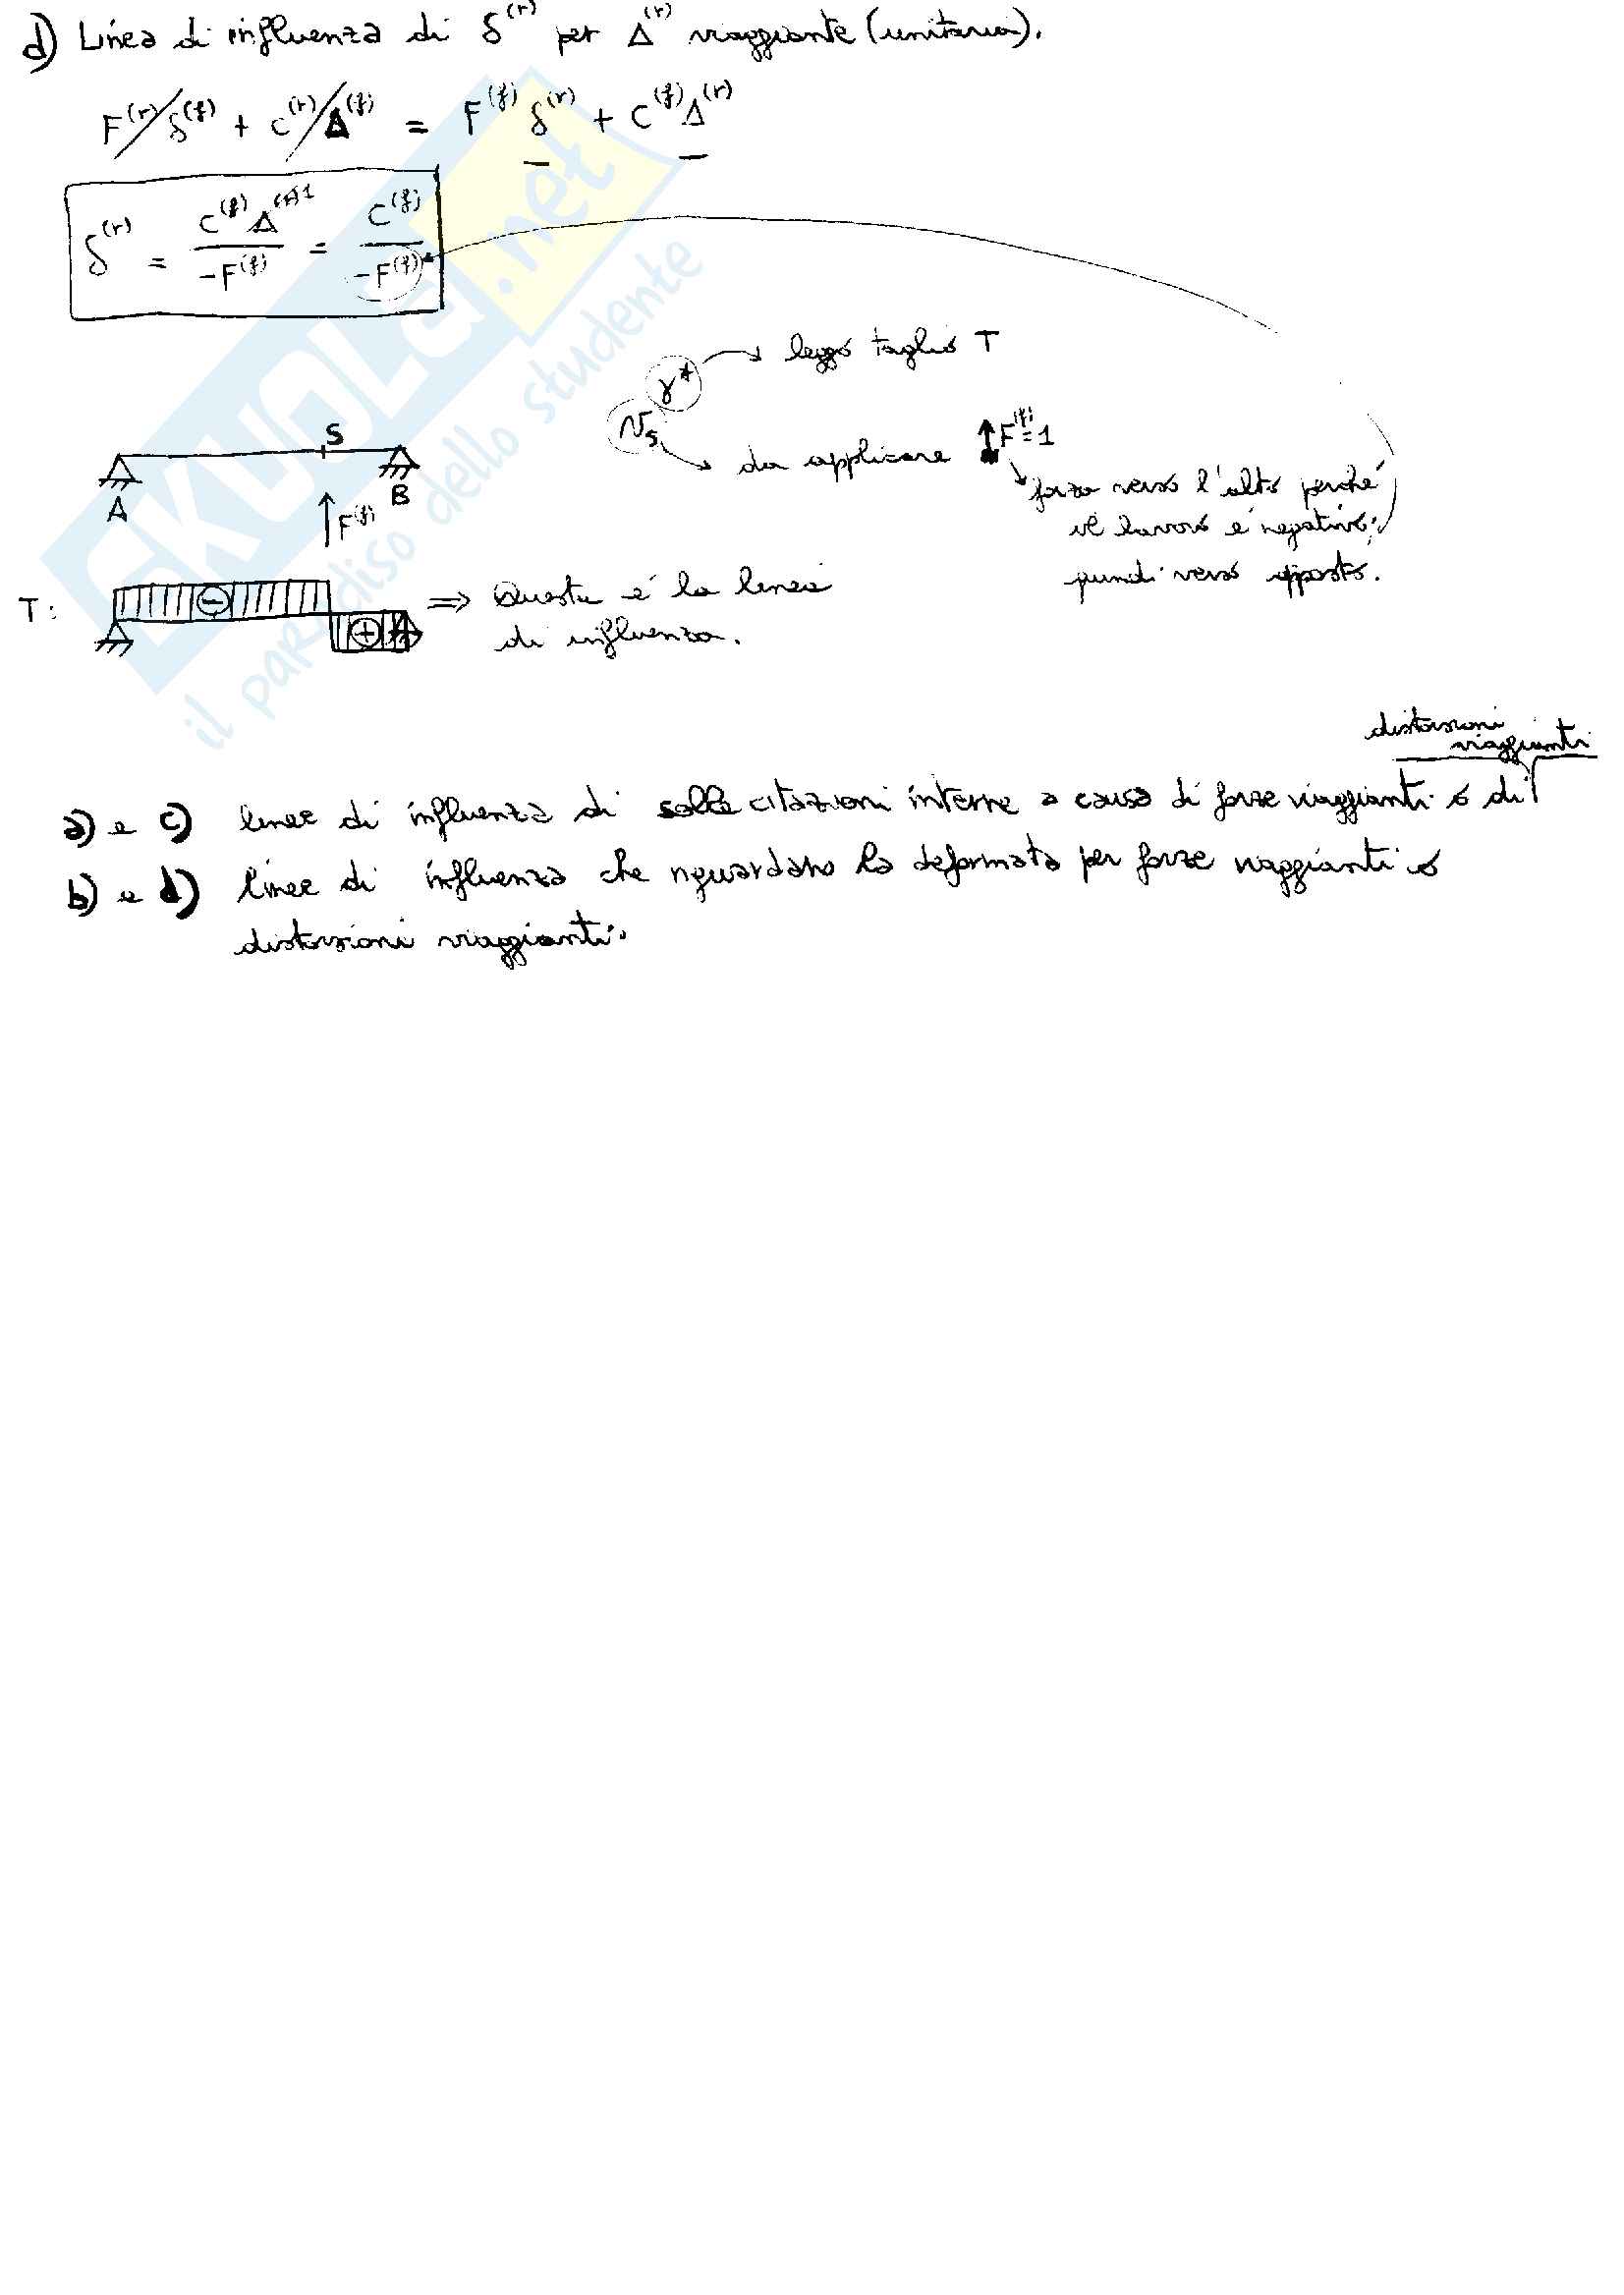 d) Linea di influenza di δ^(r) per Δ^(r) viaggiante (unitaria).
F^(r) δ^(f) + C^(r) Δ^(f) = F^(f) δ^(r) + C^(f) Δ^(r)
δ^(r) = C^(f) Δ^(r) 1 / -F^(f) = C^(f) / -F^(f)
γ* → leggo taglio T
v_S → da applicare F^(f)=1
forza verso l'alto perché
il lavoro è negativo;
quindi verso opposto.
S
A
B
F^(f)
T: - + ⇒ Questa è la linea
di influenza.
distorsioni
viaggianti
a) e c) linee di influenza di sollecitazioni interne a causa di forze viaggianti o di
b) e d) linee di influenza che riguardano la deformata per forze viaggianti o
distorsioni viaggianti.
SKUOLA.net
il paradiso dello studente